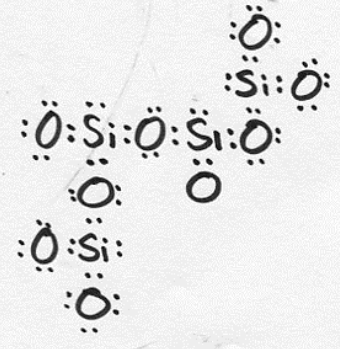 :Ö:
:Si:Ö:
:Ö:Si:O:Si:O:
:O: O
:O:Si:
:O: